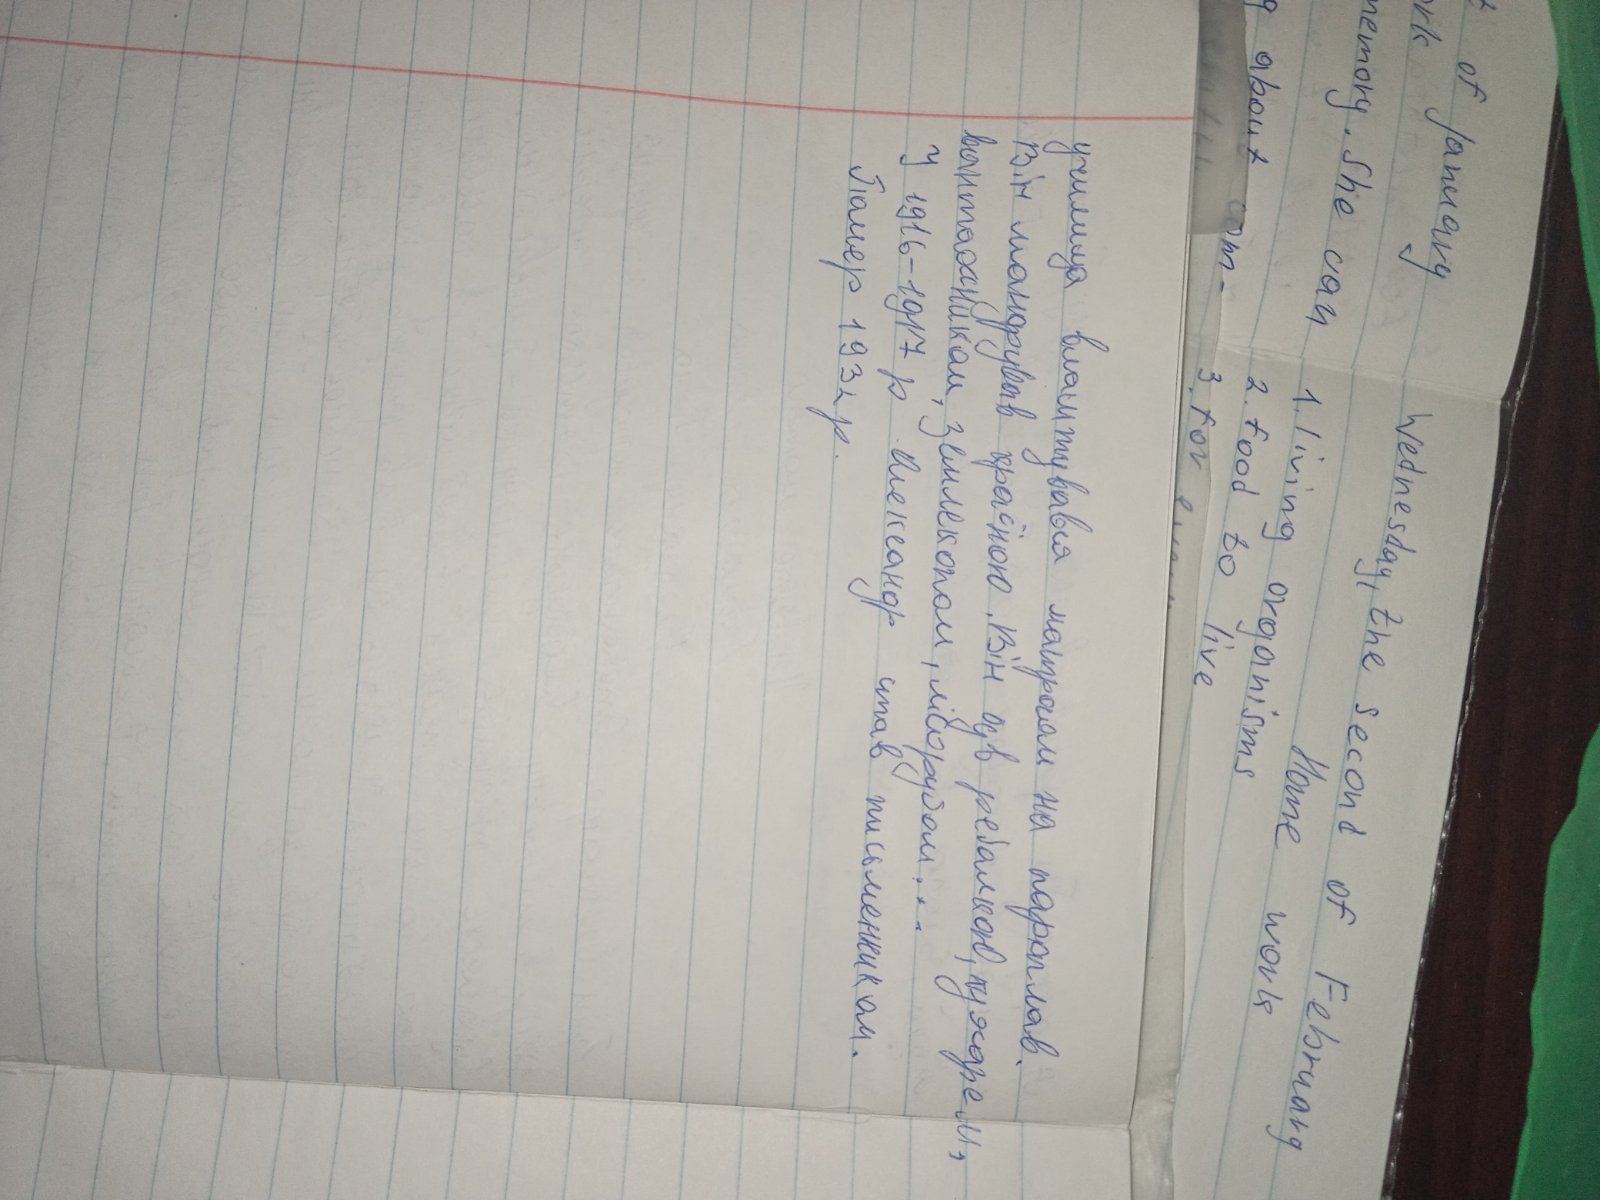 of Janeary
memory. She can
g about com-
Wednesday, the second of February
Home work
1. living organisms
2. food to live
3. for
училища влаштувався матросом на пароплав.
Він мандрував країною. Він був ребалкою, пужарем,
вантажником, землекопом, лісорубом...
У 1916-1917 р Александр став письменником.
Памер 1932 р.